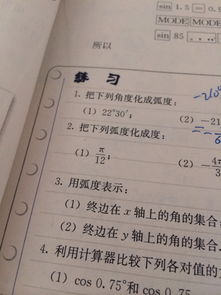 sin 1.5 = 0.
MODE MODE
sin 85
所以
练习
1. 把下列角度化成弧度:
(1) 22°30′;
(2) -21
2. 把下列弧度化成度:
(1) π/12;
(2) -4π/3
3. 用弧度表示:
(1) 终边在 x 轴上的角的集合
(2) 终边在 y 轴上的角的集合
4. 利用计算器比较下列各对值的
(1) cos 0.75°和 cos 0.7